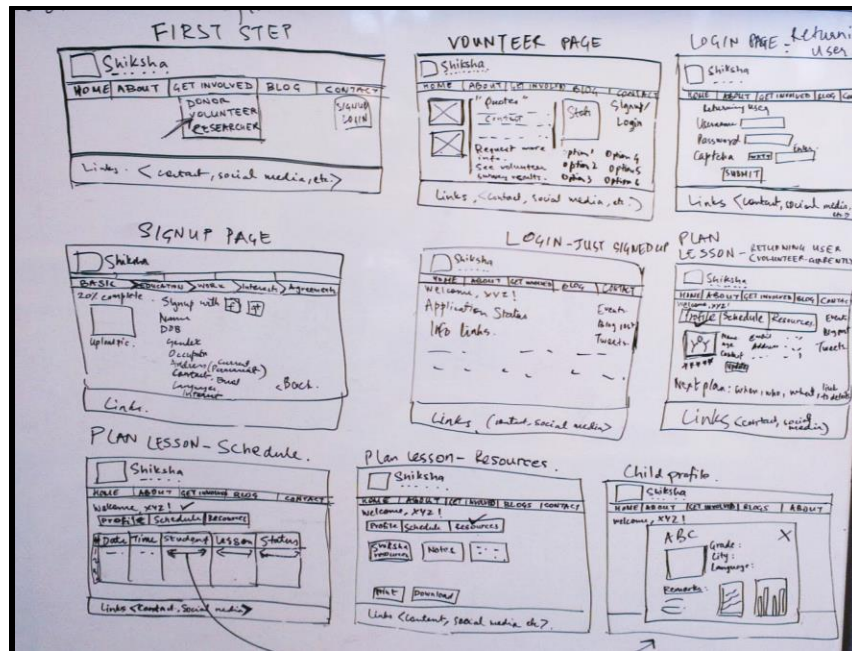 FIRST STEP
Shiksha
HOME ABOUT GET INVOLVED BLOG CONTACT
DONOR
VOLUNTEER
RESEARCHER
SIGNUP
LOGIN
Links. < contact, social media, etc.>
VOUNTEER PAGE
Shiksha
HOME ABOUT GET INVOLVED BLOG CONTACT
"Quotes"
Contact
Request more
info.
See volunteer
survey results.
Stats
Option 2
Option 3
Option 4
Option 5
Option 6
Signup/
Login
Links, <contact, social media, etc.>
LOGIN PAGE - Returni
User
Shiksha
HOME ABOUT GET INVOLVED BLOG
Returning user
Username
Password
Captcha
Enter
SUBMIT
Links <contact, social media,
etc>
SIGNUP PAGE
Shiksha
BASIC EDUCATION WORK Interests Agreements
20% complete
Upload pic.
Signup with f
Name
DOB
Gender
Address (Current
Permanent)
Contact - Email
Languages
Interest
<Back.
Links.
LOGIN - JUST SIGNED UP
Shiksha
HOME ABOUT GET INVOLVED BLOG CONTACT
Welcome, XYZ!
Application Status
Info Links.
Events
Blog post
Tweets
Links, (contact, social media>
PLAN
LESSON - RETURNING USER
(VOLUNTEER-CURRENTLY
Shiksha
HOME ABOUT GET INVOLVED BLOG CONTAC
Welcome, XYZ!
Profile Schedule Resources
Name
Age
Contact
Email
Address
Update
Event
Blog post
Tweets
Next plan: when, who, what, link
to details
Links <contact, social
media>
PLAN LESSON - Schedule.
Shiksha
HOME ABOUT GET INVOLVED BLOG CONTACT
Welcome, XYZ!
Profile Schedule Resources
Date Time Student Lesson Status
Links <Contact, Social media>
Plan lesson - Resources.
Shiksha
HOME ABOUT GET INVOLVED BLOGS CONTACT
Welcome, XYZ!
Profile Schedule Resources
Shiksha
resources
Notes
Print Download
Links <content, social media etc>.
Child profile.
Shiksha
HOME ABOUT GET INVOLVED BLOGS ABOUT
Welcome, XYZ!
ABC X
Grade:
City:
Language:
Remarks: